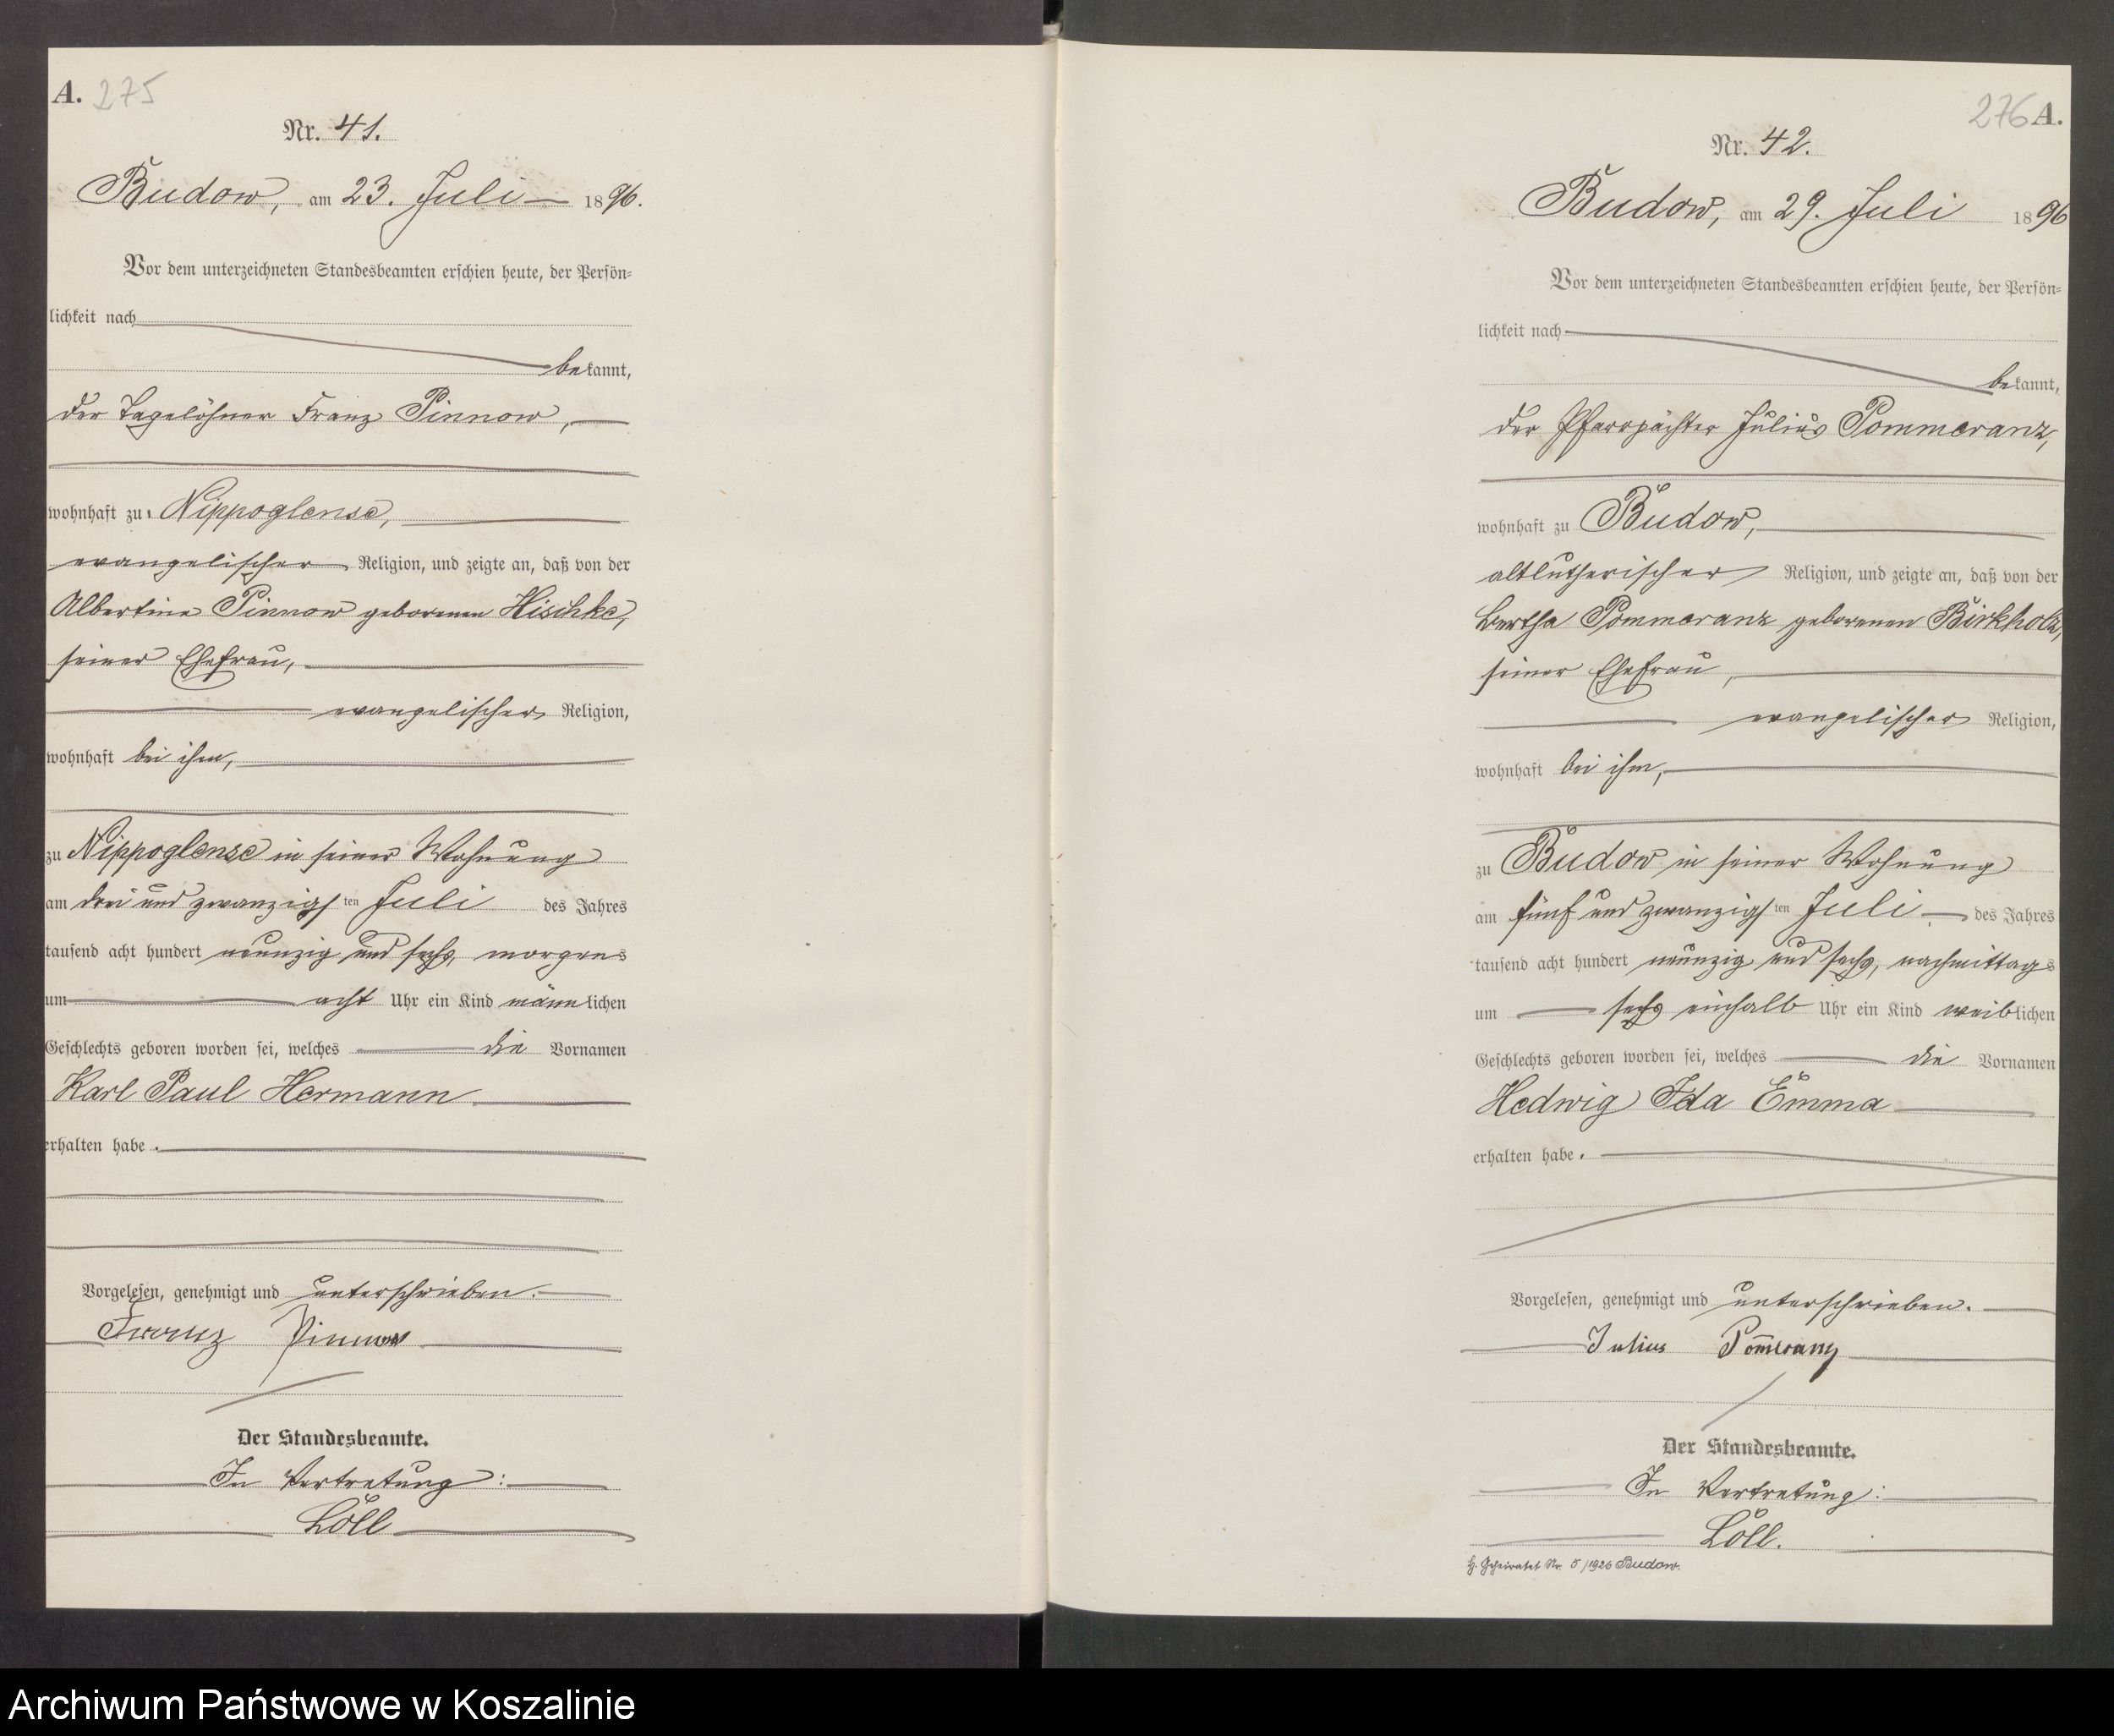 A. 275
Nr. 41.
Budow, am 23. Juli 1896.
Vor dem unterzeichneten Standesbeamten erschien heute, der Persön-
lichkeit nach
bekannt,
der Tagelöhner Franz Pinnow,
wohnhaft zu Nippoglense,
evangelischer Religion, und zeigte an, daß von der
Albertine Pinnow geborenen Hischke,
seiner Ehefrau,
evangelischer Religion,
wohnhaft bei ihm,
zu Nippoglense in seiner Wohnung
am drei und zwanzigsten Juli des Jahres
tausend acht hundert neunzig und sechs, morgens
um acht Uhr ein Kind männlichen
Geschlechts geboren worden sei, welches die Vornamen
Karl Paul Hermann
erhalten habe.
Vorgelesen, genehmigt und unterschrieben.
Franz Pinnow
Der Standesbeamte.
In Vertretung:
Löll
276 A.
Nr. 42.
Budow, am 29. Juli 1896
Vor dem unterzeichneten Standesbeamten erschien heute, der Persön-
lichkeit nach
bekannt,
der Pfarrpächter Julius Pommeranz,
wohnhaft zu Budow,
altlutherischer Religion, und zeigte an, daß von der
Bertha Pommeranz geborenen Birkholz,
seiner Ehefrau,
evangelischer Religion,
wohnhaft bei ihm,
zu Budow in seiner Wohnung
am fünf und zwanzigsten Juli des Jahres
tausend acht hundert neunzig und sechs, nachmittags
um sechs einhalb Uhr ein Kind weiblichen
Geschlechts geboren worden sei, welches die Vornamen
Hedwig Ida Emma
erhalten habe.
Vorgelesen, genehmigt und unterschrieben.
Julius Pom̅eranz
Der Standesbeamte.
In Vertretung:
Löll.
H. Geheiratet Nr. 5/1926 Budow.
Archiwum Państwowe w Koszalinie